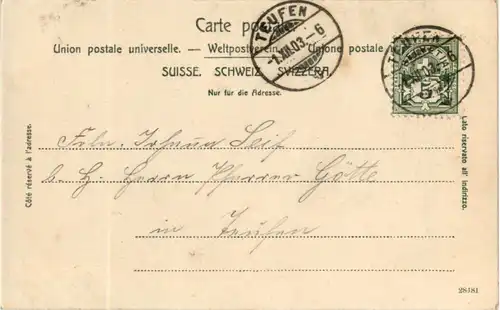 Carte pos
TEUFEN
1.XII.03.–6
Union postale universelle. — Weltpostverein. — Unione postale
SUISSE. SCHWEIZ. SVIZZERA.
Nur für die Adresse.
TEUFEN
5
Côté réservé à l'adresse.
Lato riservato all' indirizzo.
Frln. Johanna Seif
b. H. Herrn Pfarrer Götte
in Teufen
28481